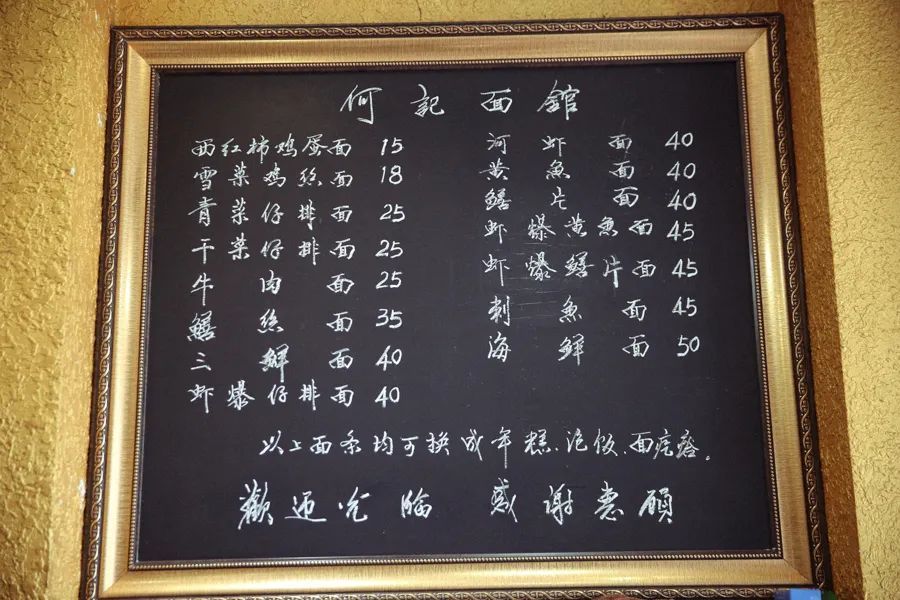 何記面舘
西红柿鸡蛋面 15
雪菜鸡丝面 18
青菜仔排面 25
干菜仔排面 25
牛肉面 25
鳝丝面 35
三鲜面 40
虾爆仔排面 40
河虾面 40
黄魚面 40
鳝片面 40
虾爆黄魚面 45
虾爆鳝片面 45
刺魚面 45
海鲜面 50
以上面条均可换成年糕、泡饭、面疙瘩。
歡迎光临 感谢惠顾